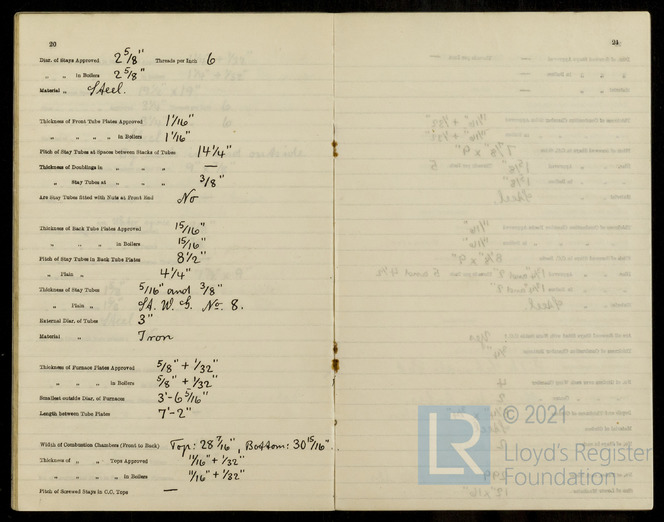 20
Diar. of Stays Approved 2 5/8" Threads per Inch 6
" " in Boilers 2 5/8"
Material " Steel.
Thickness of Front Tube Plates Approved 1 1/16"
" " " " in Boilers 1 1/16"
Pitch of Stay Tubes at Spaces between Stacks of Tubes 14 1/4"
Thickness of Doublings in " " " —
" Stay Tubes at " " " 3/8"
Are Stay Tubes fitted with Nuts at Front End No
Thickness of Back Tube Plates Approved 15/16"
" " " in Boilers 15/16"
Pitch of Stay Tubes in Back Tube Plates 8 1/2"
" Plain " 4 1/4"
Thickness of Stay Tubes 5/16" and 3/8"
" Plain " St. W. G. No. 8.
External Diar. of Tubes 3"
Material " Iron
Thickness of Furnace Plates Approved 5/8" + 1/32"
" " " in Boilers 5/8" + 1/32"
Smallest outside Diar. of Furnaces 3'-6 5/16"
Length between Tube Plates 7'-2"
Width of Combustion Chambers (Front to Back) Top: 28 7/16", Bottom: 30 15/16".
Thickness of " " Tops Approved 11/16" + 1/32"
" " " " in Boilers 11/16" + 1/32"
Pitch of Screwed Stays in C.C. Tops —
21
© 2021
LR
Lloyd's Register
Foundation